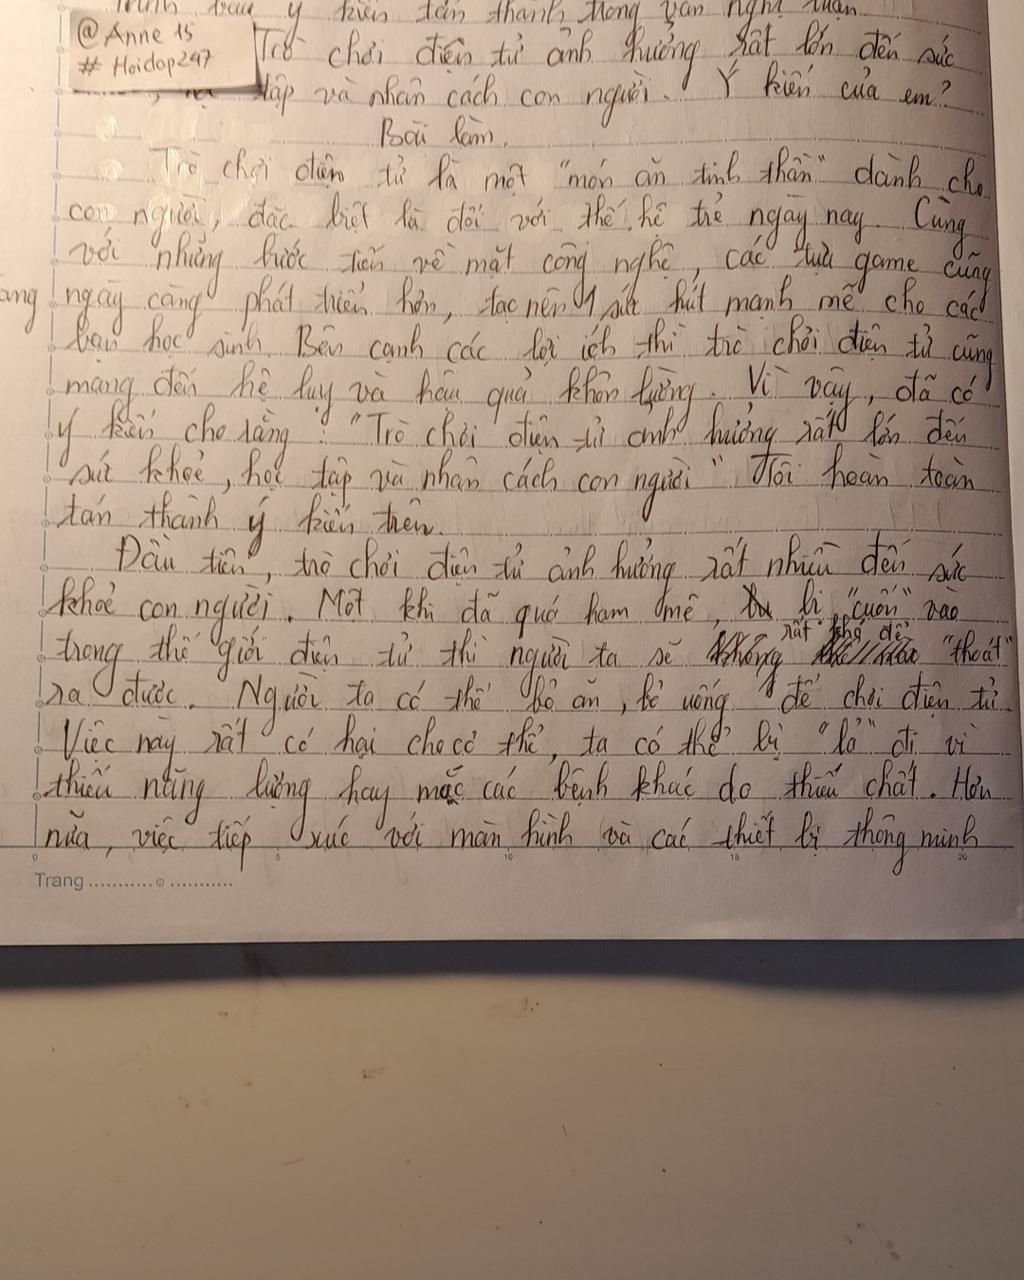 Trình bày ý kiến tán thành trong văn nghị luận
@Anne 15
# Hoidap247
Trò chơi điện tử ảnh hưởng rất lớn đến sức
tập và nhân cách con người. Ý kiến của em?
Bài làm.
Trò chơi điện tử là một "món ăn tinh thần" dành cho
con người, đặc biệt là đối với thế hệ trẻ ngày nay. Cùng
với những bước tiến về mặt công nghệ, các tựa game cũng
ang ngày càng phát triển hơn, tạc nên 1 sức hút mạnh mẽ cho các
bạn học sinh. Bên cạnh các lợi ích thì trò chơi điện tử cũng
mang đến hệ lụy và hậu quả khôn lường. Vì vậy, đã có
ý kiến cho rằng: "Trò chơi điện tử ảnh hưởng rất lớn đến
sức khoẻ, học tập và nhân cách con người" Tôi hoàn toàn
tán thành ý kiến trên.
Đầu tiên, trò chơi điện tử ảnh hưởng rất nhiều đến sức
khoẻ con người. Một khi đã quá ham mê, bị "cuốn" vào
trong thế giới điện tử thì người ta sẽ rất khó để "thoát"
ra được. Người ta có thể bỏ ăn, bỏ uống để chơi điện tử.
Việc này rất có hại cho cơ thể, ta có thể bị "lả" đi vì
thiếu năng lượng hay mắc các bệnh khác do thiếu chất. Hơn
nữa, việc tiếp xúc với màn hình và các thiết bị thông minh
0 5 10 15 20
Trang ........... ...........